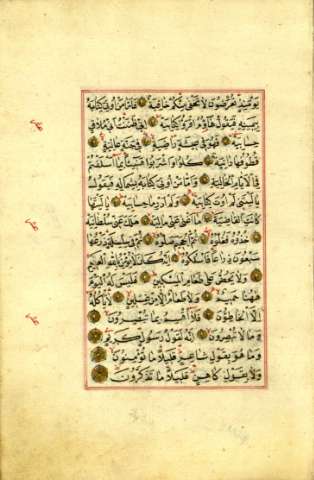 يَوْمَئِذٍ تُعْرَضُونَ لَا تَخْفَى مِنْكُمْ خَافِيَةٌ فَأَمَّا مَنْ أُوتِيَ كِتَابَهُ
بِيَمِينِهِ فَيَقُولُ هَاؤُمُ اقْرَؤُا كِتَابِيَهْ إِنِّي ظَنَنْتُ أَنِّي مُلَاقٍ
حِسَابِيَهْ فَهُوَ فِي عِيشَةٍ رَاضِيَةٍ فِي جَنَّةٍ عَالِيَةٍ
قُطُوفُهَا دَانِيَةٌ كُلُوا وَاشْرَبُوا هَنِيئًا بِمَا أَسْلَفْتُمْ
فِي الْأَيَّامِ الْخَالِيَةِ وَأَمَّا مَنْ أُوتِيَ كِتَابَهُ بِشِمَالِهِ فَيَقُولُ
يَا لَيْتَنِي لَمْ أُوتَ كِتَابِيَهْ وَلَمْ أَدْرِ مَا حِسَابِيَهْ يَا لَيْتَهَا
كَانَتِ الْقَاضِيَةَ مَا أَغْنَى عَنِّي مَالِيَهْ هَلَكَ عَنِّي سُلْطَانِيَهْ
خُذُوهُ فَغُلُّوهُ ثُمَّ الْجَحِيمَ صَلُّوهُ ثُمَّ فِي سِلْسِلَةٍ ذَرْعُهَا
سَبْعُونَ ذِرَاعًا فَاسْلُكُوهُ إِنَّهُ كَانَ لَا يُؤْمِنُ بِاللَّهِ الْعَظِيمِ
وَلَا يَحُضُّ عَلَى طَعَامِ الْمِسْكِينِ فَلَيْسَ لَهُ الْيَوْمَ
هَهُنَا حَمِيمٌ وَلَا طَعَامٌ إِلَّا مِنْ غِسْلِينٍ لَا يَأْكُلُهُ
إِلَّا الْخَاطِئُونَ فَلَا أُقْسِمُ بِمَا تُبْصِرُونَ
وَمَا لَا تُبْصِرُونَ إِنَّهُ لَقَوْلُ رَسُولٍ كَرِيمٍ
وَمَا هُوَ بِقَوْلِ شَاعِرٍ قَلِيلًا مَا تُؤْمِنُونَ
وَلَا بِقَوْلِ كَاهِنٍ قَلِيلًا مَا تَذَكَّرُونَ